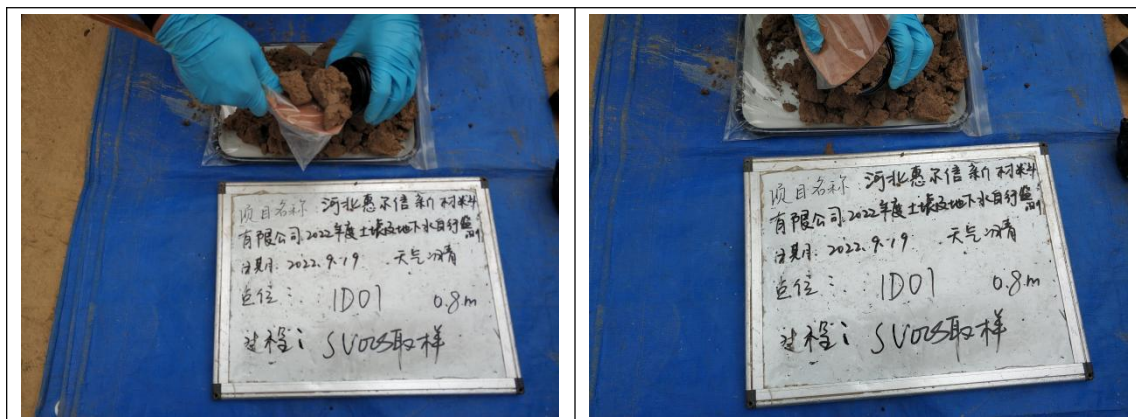 项目名称 河北惠尔信新材料
有限公司.2022年度土壤及地下水自行监测
日期. 2022.9.19 天气:晴
点位: 1D01 0.8m
过程: SVOCS取样
项目名称 河北惠尔信新材料
有限公司.2022年度土壤及地下水自行监测
日期. 2022.9.19 天气:晴
点位: 1D01 0.8m
过程: SVOCS取样